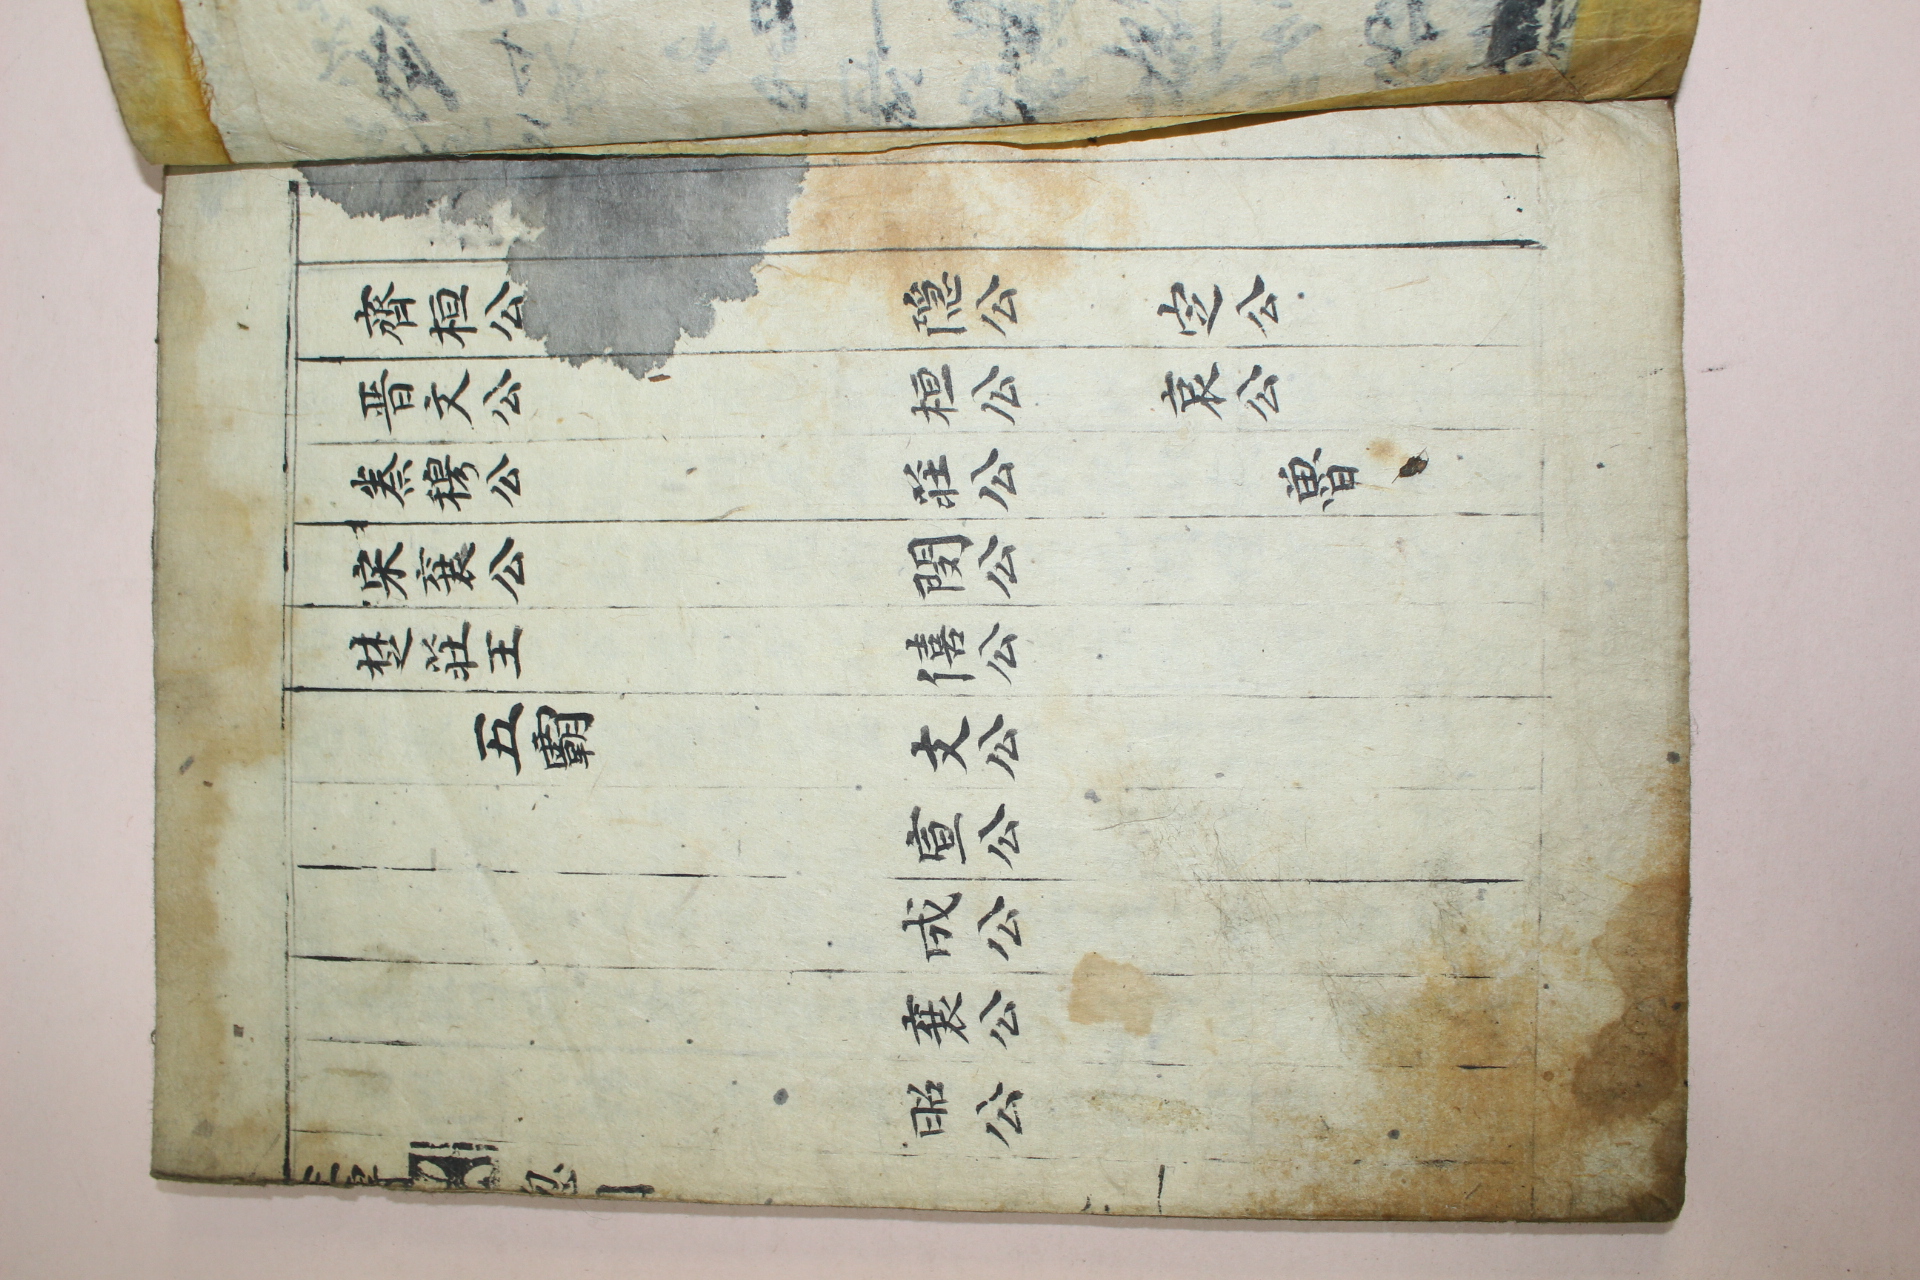 齊桓公
晋文公
秦穆公
宋襄公
楚莊王
五霸
隠公
桓公
莊公
閔公
僖公
文公
宣公
成公
襄公
昭公
定公
哀公
魯